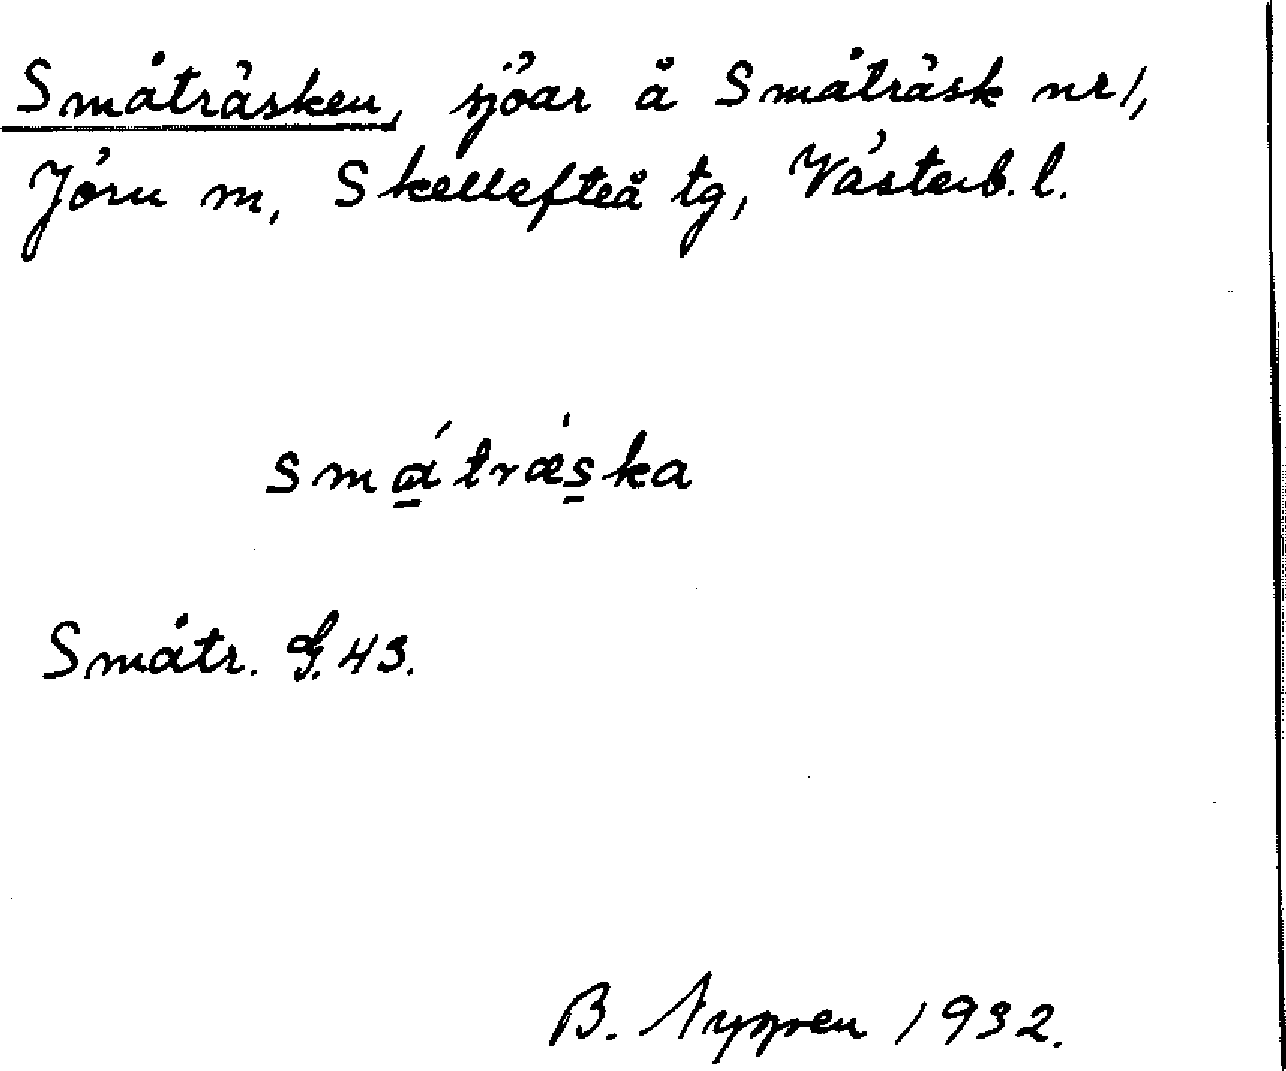 Småträsken, sjöar å Småträsk nr 1,
Jörn m, Skellefteå tg, Västerb. l.
småträska
Småtr. G. 43.
B. 1932.